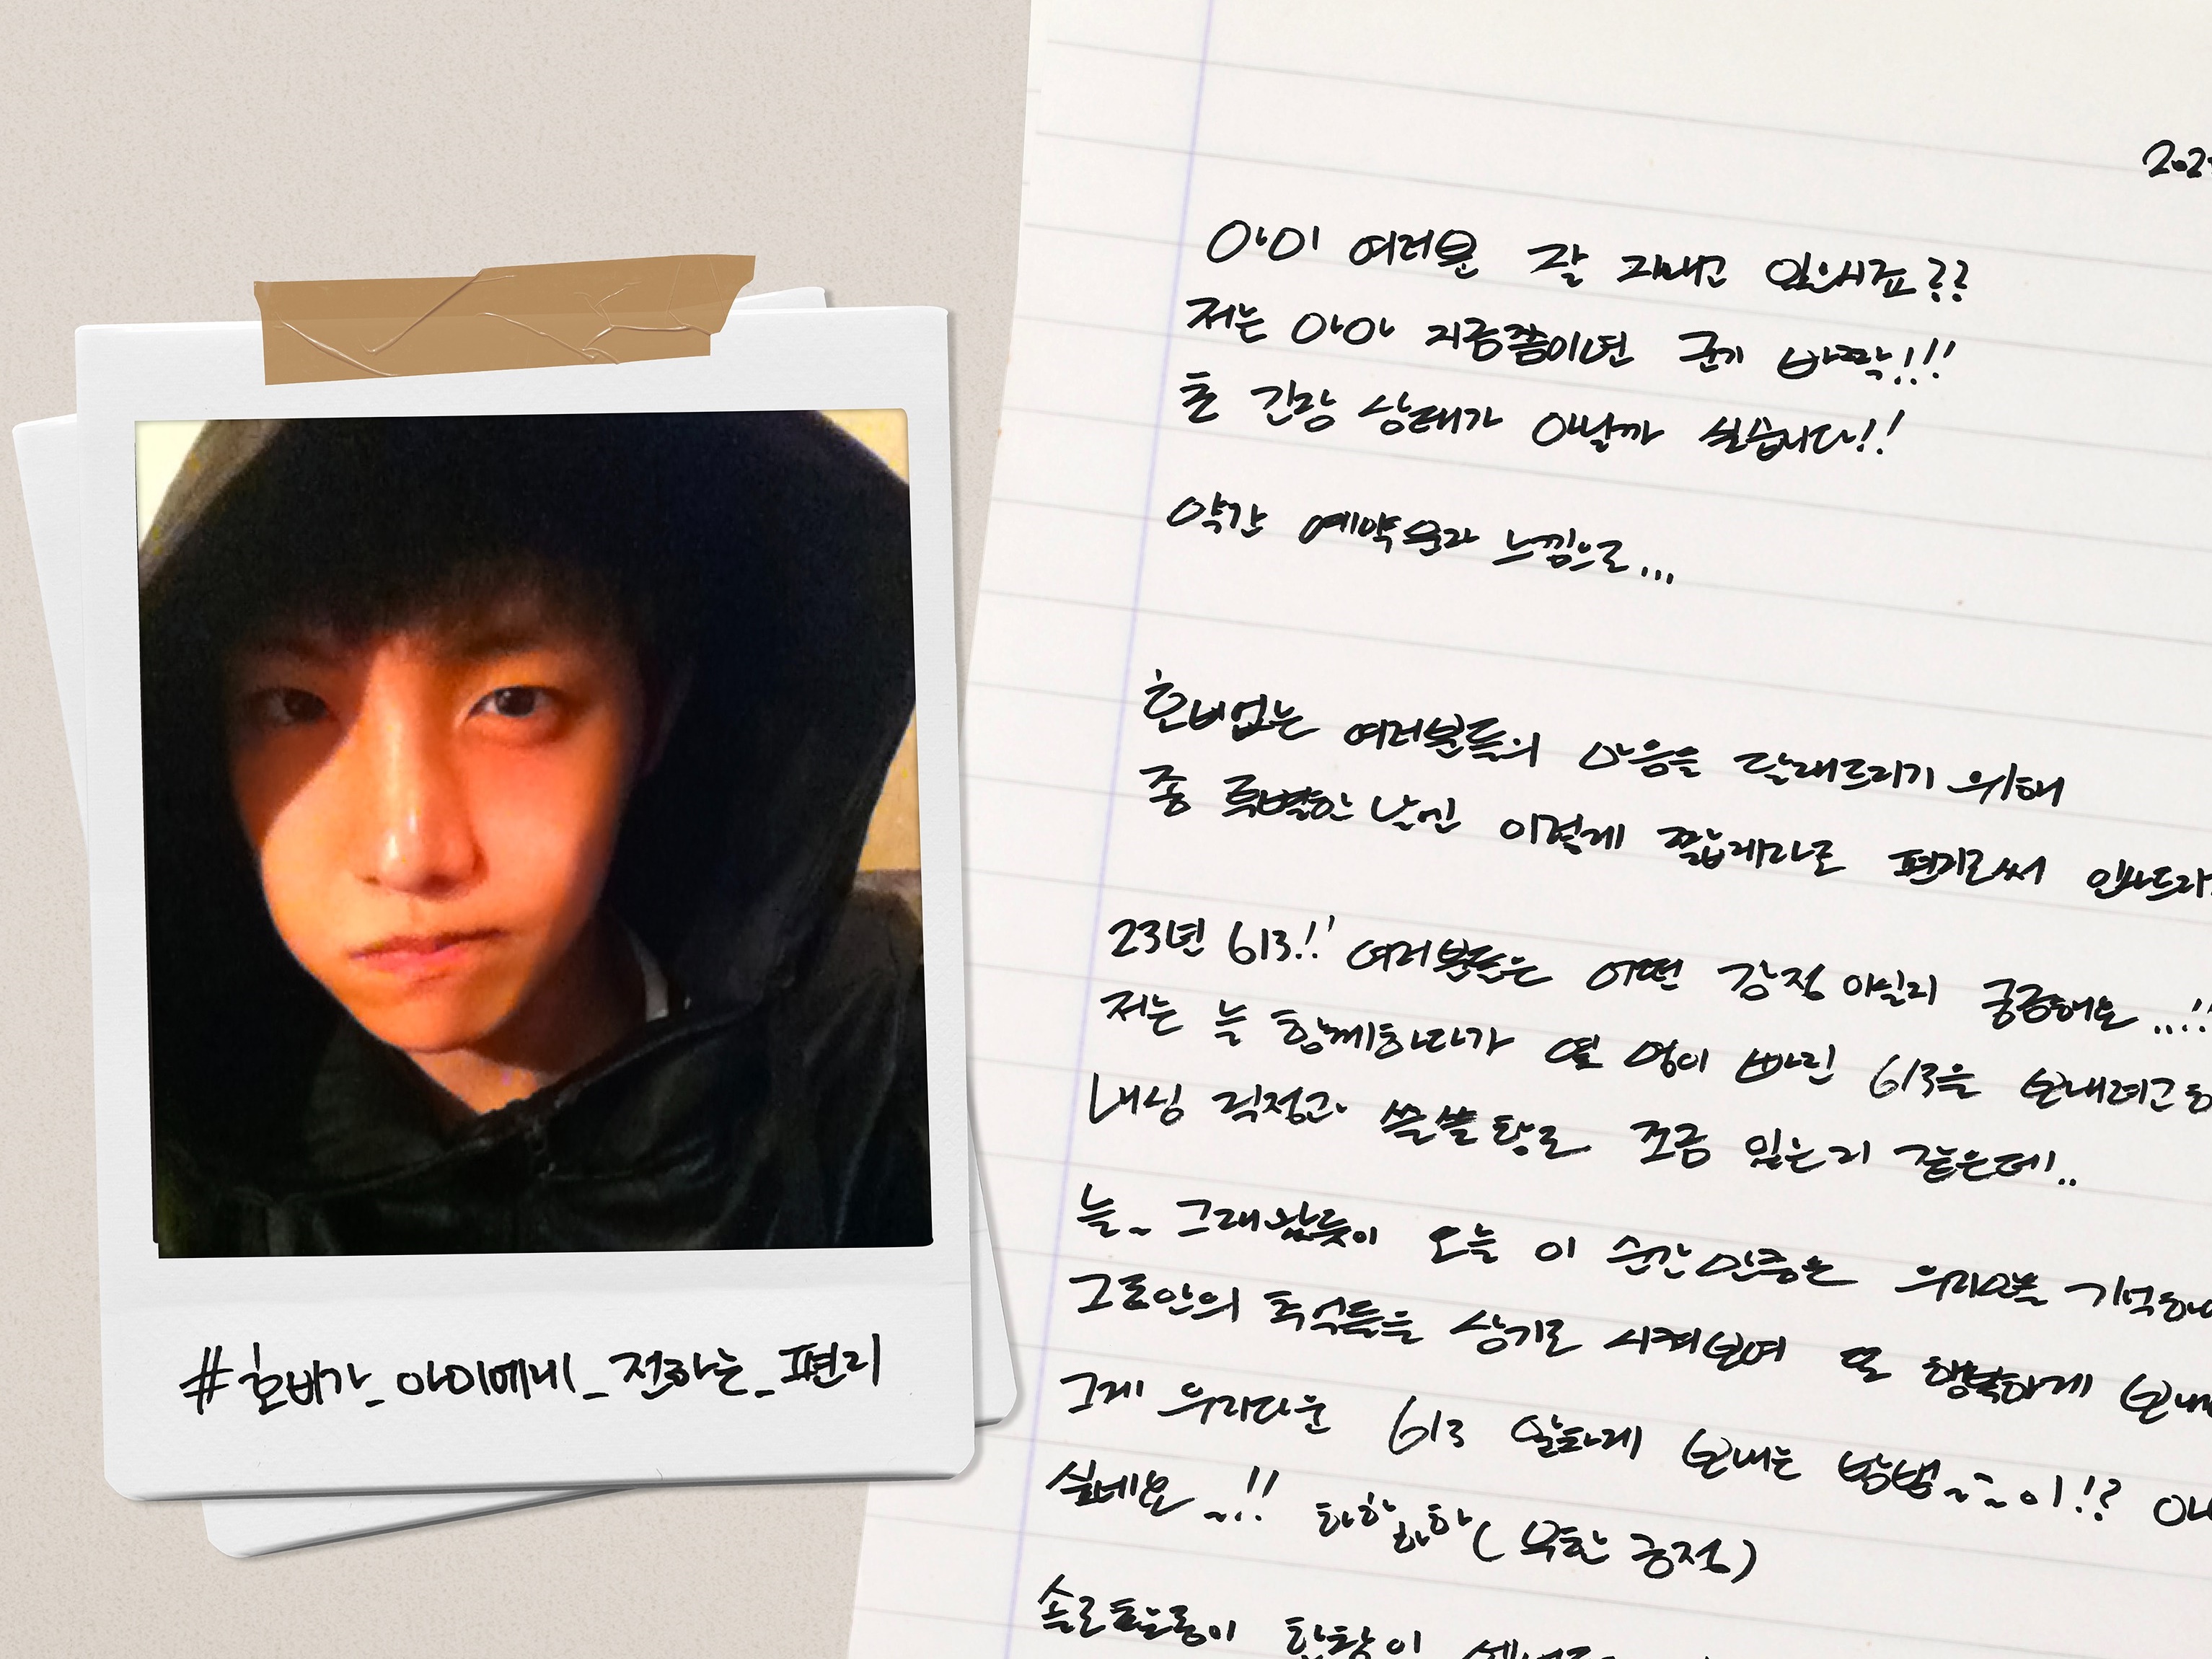 202
아미 여러분 잘 지내고 있으시죠??
저는 아마 지금쯤이면 군기 바짝!!!
초 긴장 상태가 아닐까 싶습니다!!
약간 예약문자 느낌으로...
호비없는 여러분들의 마음을 달래드리기 위해
종 특별한 날엔 이렇게 짧게라도 편지로써 인사드리
23년 613!! 여러분들은 어떤 감정 이실지 궁금해요...!!
저는 늘 함께하다가 몇 명이 빠진 613을 보내려고 하
내심 걱정과 쓸쓸함도 조금 있는지 같은데!..
늘~ 그래왔듯이 오늘 이 순간 만큼은 우리만을 기억하
그동안의 추억들을 상기로 시켜보며 또 행복하게 보내
그게 우리다운 613 알차게 보내는 방법~~~이!?
싶네요~!! 하하하하(무한 긍정)
솔로활동이 한창이
#호비가_아미에게_전하는_편지